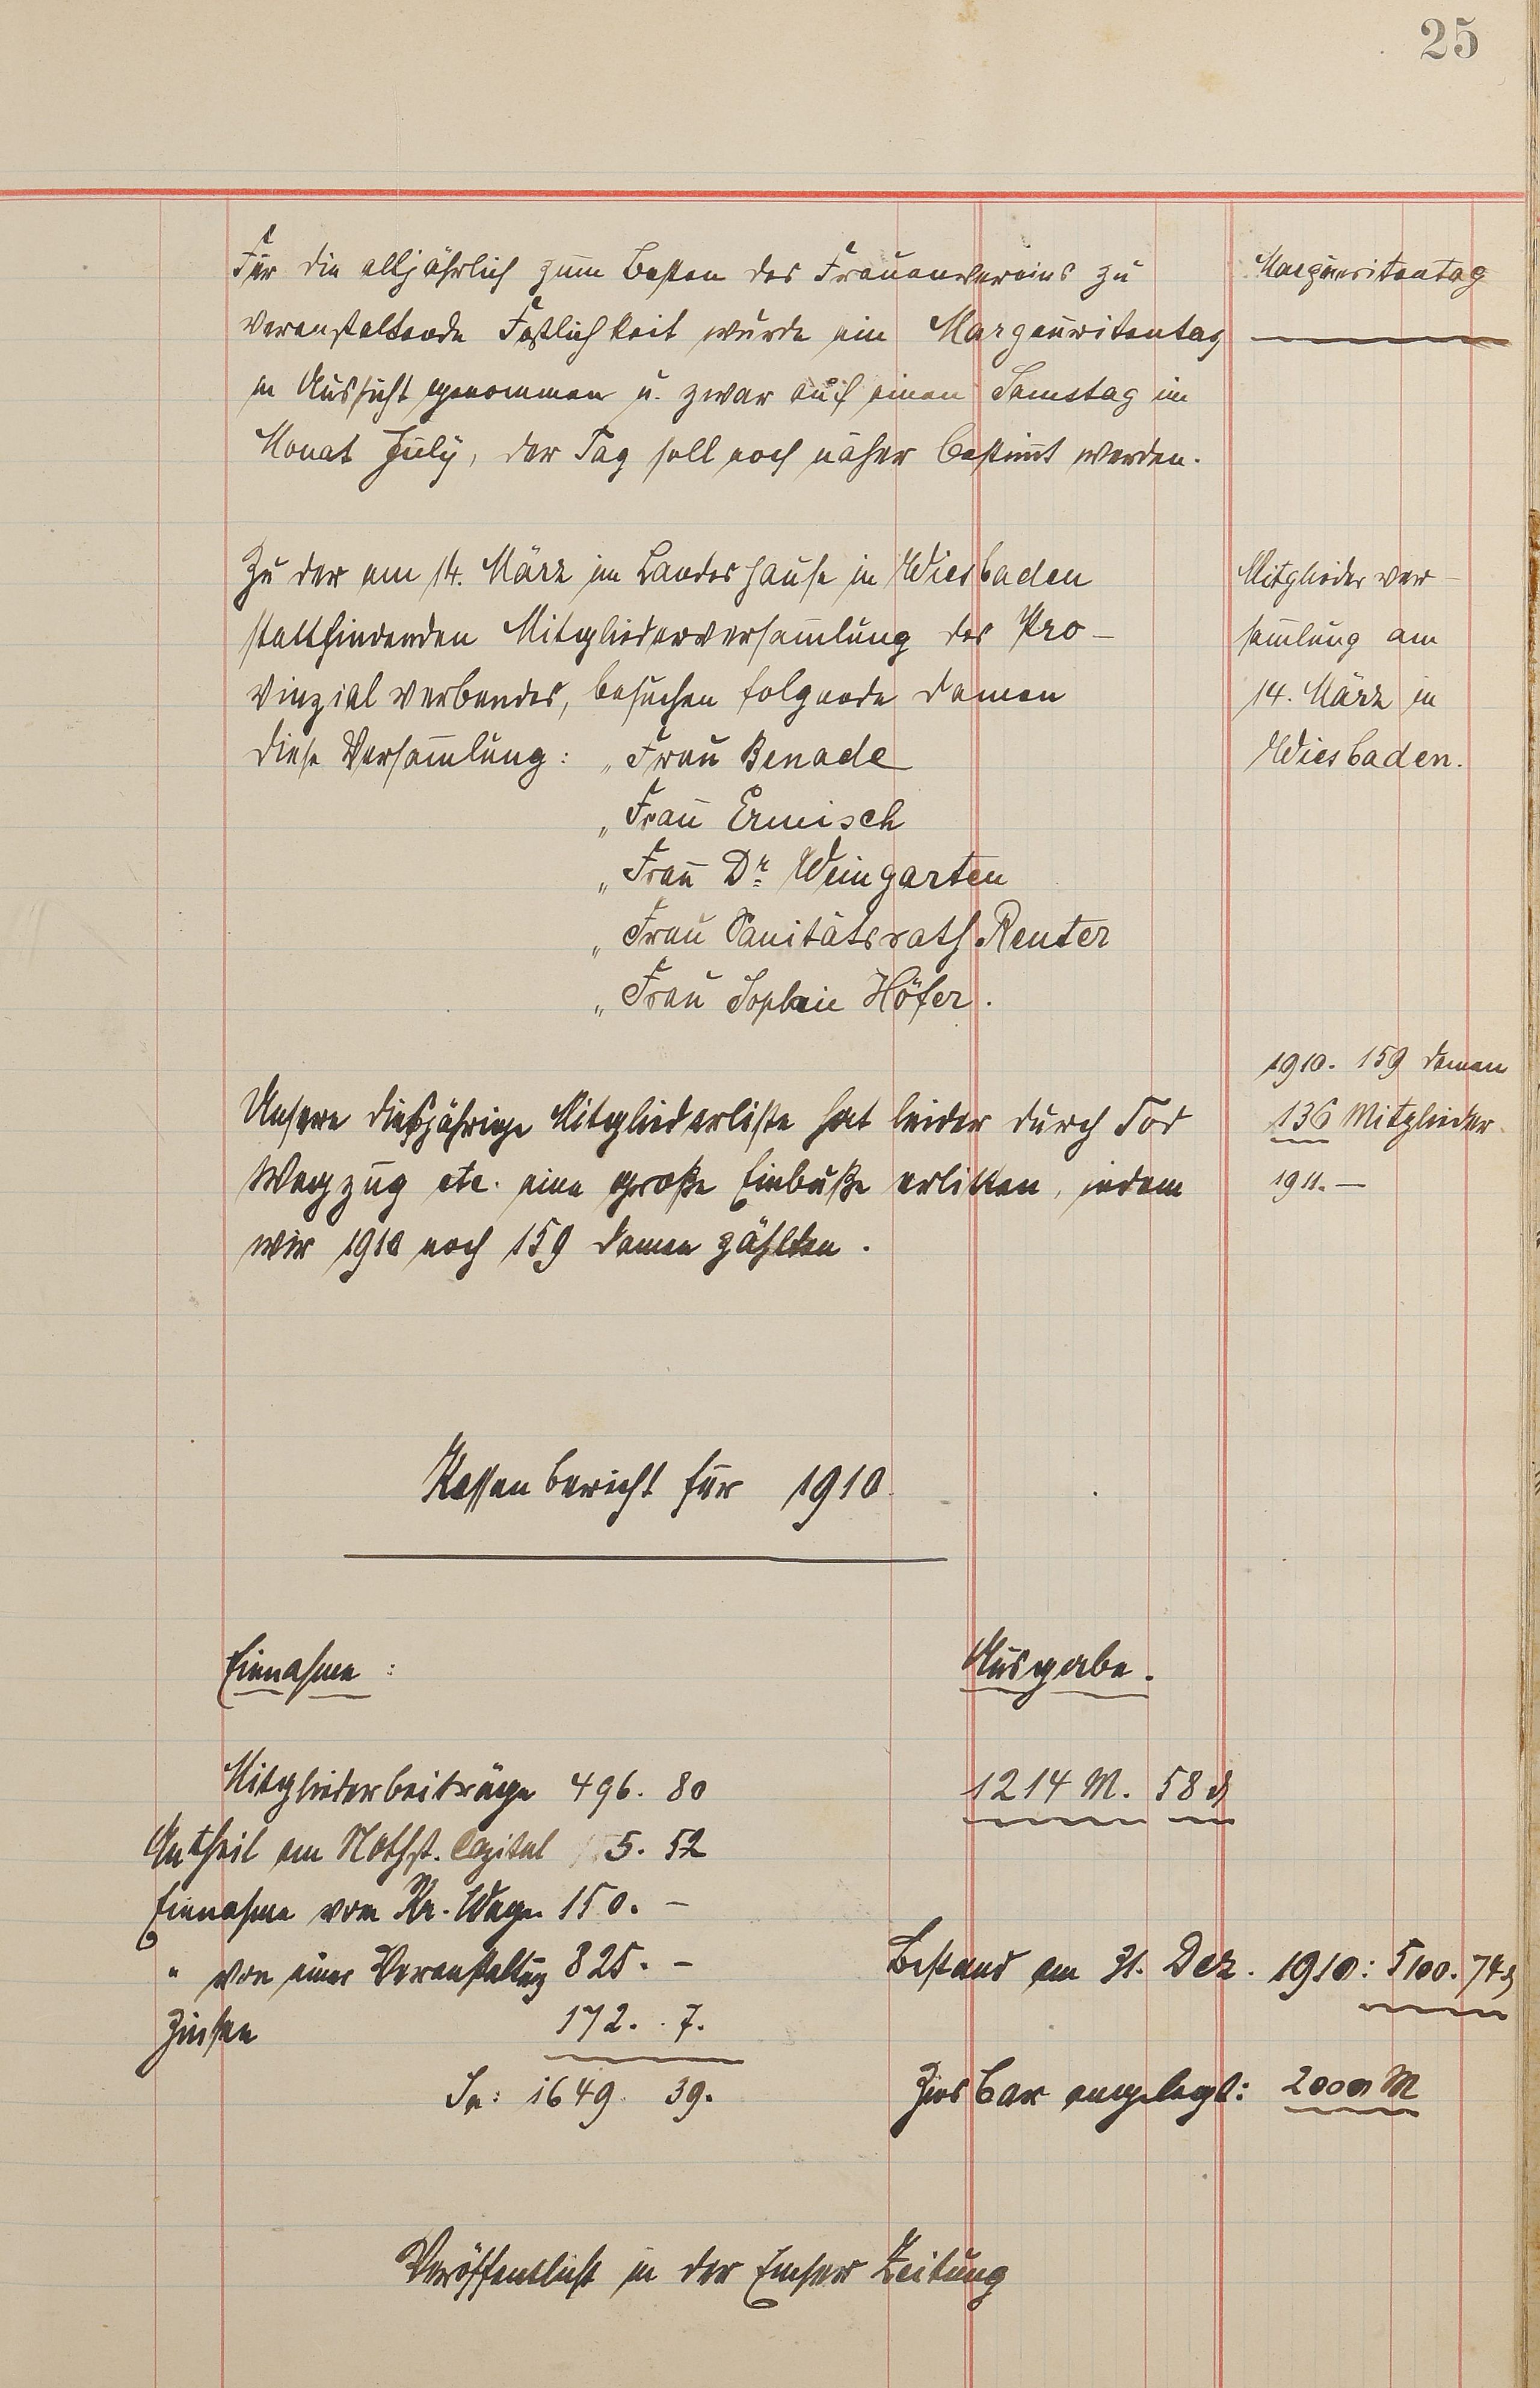 25
Für die alljährlich zum Besten des Frauenvereins zu
veranstaltende Festlichkeit wurde ein Margeuritentag
in Aussicht genommen u. zwar auf einen Samstag im
Monat July, der Tag soll noch näher bestimt werden.
Margueritentag
Zu der am 14. März im Landeshause in Wiesbaden
stattfindenden Mitgliederversam̄lung des Pro-
vinzialverbandes, besuchen folgende Damen
diese Versam̄lung: " Frau Benade
" Frau Ermisch
" Frau Dr. Weingarten
" Frau Sanitätsrath Reuter
" Frau Sophie Höfer.
Mitgliederver-
sam̄lung am
14. März in
Wiesbaden.
Unsere diesjährige Mitgliederliste hat leider durch Tod
Wegzug etc. eine große Einbuße erlitten, indem
wir 1910 noch 159 Damen zählten.
1910. 159 Damen
136 Mitglieder
1911. —
Kassenbericht für 1910.
Einnahme:
Ausgabe.
Mitgliederbeiträge 496. 80
1214 M. 58 ₰
Antheil am Nothst. Capital 5. 52
Einnahme vom Kr. Wagen 150. –
" von einer Veranstaltung 825. –
Bestand am 31. Dez. 1910: 5100. 74 ₰
Zinsen 172. 7.
Sa: 1649. 39.
Zinsbar angelegt: 2000 M
Veröffentlicht in der Emser Zeitung